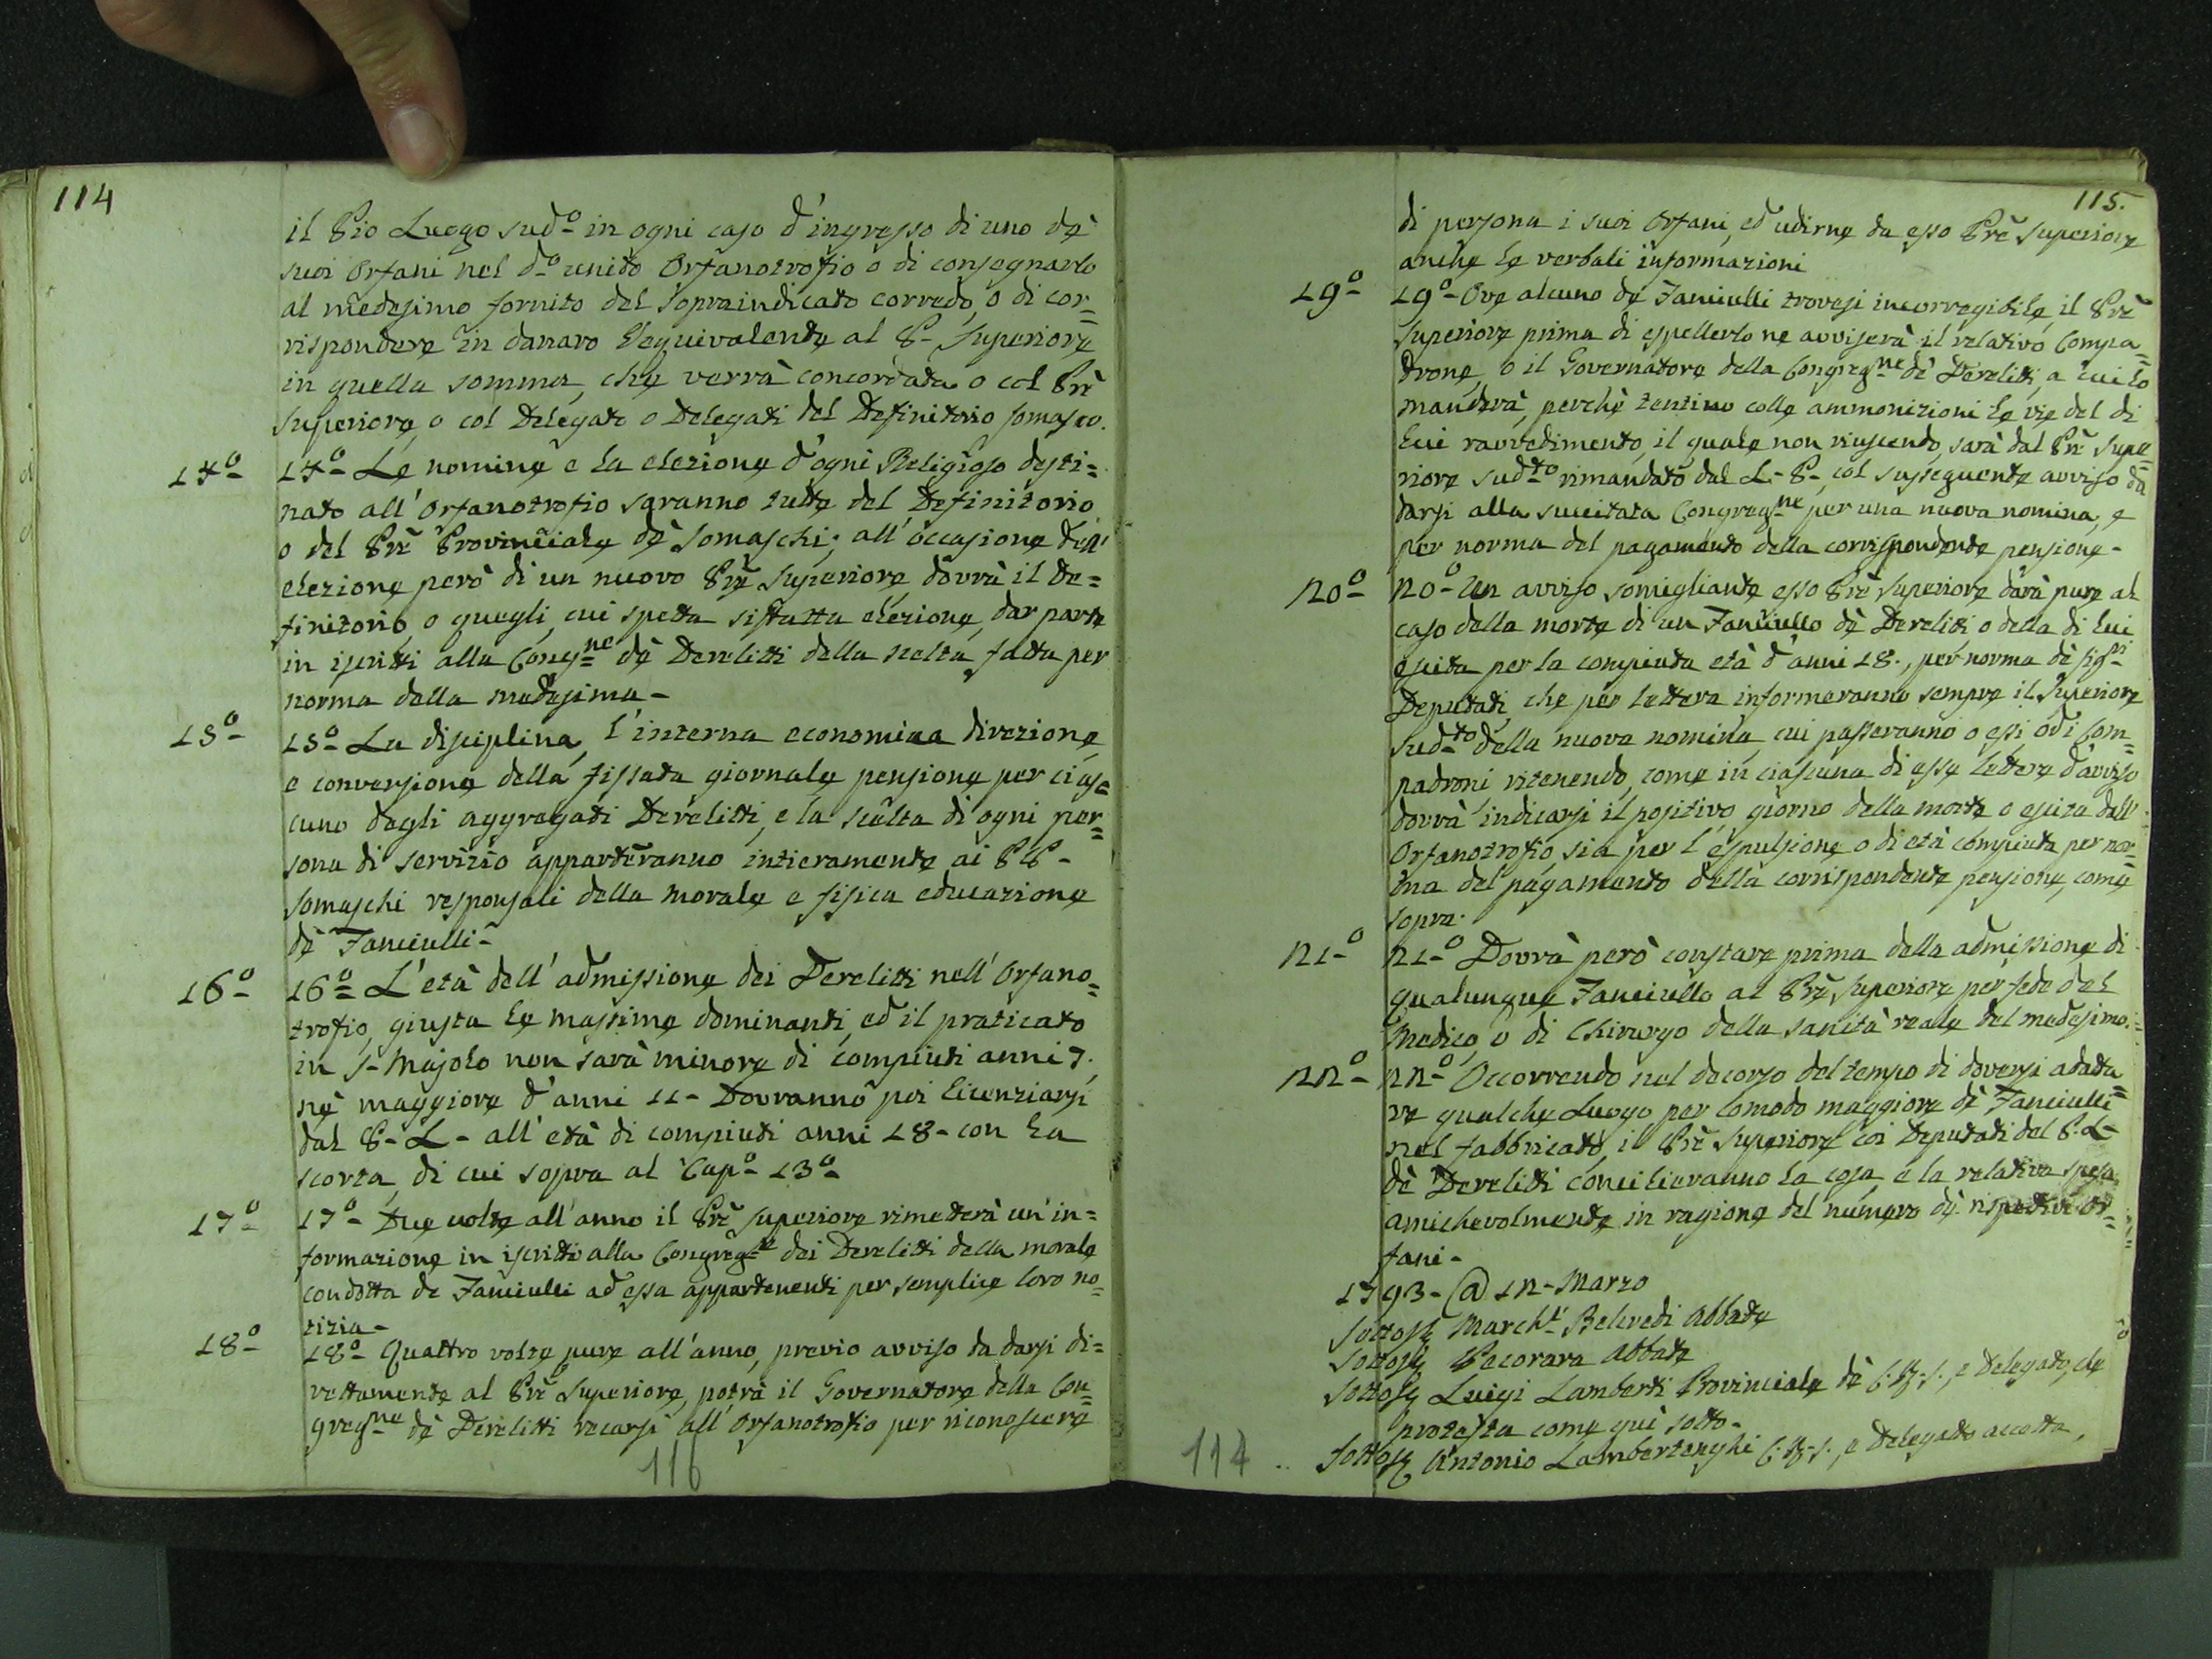 114
il Pio Luogo sud.o in ogni caso d'ingresso di uno dè
suoi Orfani nel d.o unito Orfanotrofio o di consegnarlo
al medesimo fornito del sopraindicato corredo, o di cor=
rispondere in danaro l'equivalente al P. Superiore
in quella somma, che verrà concordata o col Prē
Superiore, o col Delegato o Delegati del Definitorio Somasco.
14.o 14.o Le nomine e la elezione d'ogni Religioso desti=
nato all'Orfanotrofio saranno tutte del Definitorio
o del Prē Provinciale dè Somaschi; all'occasione dell'
elezione però di un nuovo Prē Superiore dovrà il De=
finitorio, o quegli, cui spetta siffatta elezione, dar parte
in iscritti alla Cong.ne dè Derelitti della scelta fatta per
norma della medesima-
15.o 15.o La disciplina, l'interna economica direzione,
e conversione della fissata giornale pensione per cias=
cuno degli aggregati Derelitti, e la scelta di ogni per=
sona di servizio apparterranno intieramente ai PP.
Somaschi responsali della morale e fisica educazione
dè Fanciulli-
16.o 16.o L'età dell'admissione dei Derelitti nell'Orfano=
trofio, giusta le massime dominanti, ed il praticato
in S. Majolo non sarà minore di compiuti anni 7.
nè maggiore d'anni 11- Dovranno poi licenziarsi
dal P. L. all'età di compiuti anni 18- con la
scorta, di cui sopra al Cap.o 13.o
17.o 17.o Due volte all'anno il Prē Superiore rimetterà un'in=
formazione in iscritti alla Congreg.ne dei Derelitti della morale
condotta de Fanciulli ad essa appartenenti per semplice loro no=
tizia-
18.o 18.o Quattro volte pure all'anno, previo avviso da darsi di=
rettamente al Prē Superiore, potrà il Governatore della Con=
greg.ne dè Derelitti recarsi all'Orfanotrofio per riconoscere
116
115.
di persona i suoi Orfani, ed udirne da esso Prē Superiore
anche le verbali informazioni
19.o 19.o Ove alcuno dè Fanciulli trovisi incorregibile, il Prē
Superiore prima di espellerlo ne avviserà il relativo Compa=
drone, o il Governatore della Congreg.ne dè Derelitti, a cui lo
manderà, perchè tentino colle ammonizioni le vie del di
lui ravvedimento, il quale non riuscendo, sarà dal Prē Supe=
riore sud.to rimandato dal L. P., col sussequente avviso da
darsi alla succitata Congreg.ne per una nuova nomina, e
per norma del pagamento della corrispondente pensione-
20.o 20.o Un avviso somigliante esso Prē Superiore darà pure al
caso della morte di un Fanciullo dè Derelitti o della di lui
escita per la compiuta età d'anni 18., per norma dè Sig.ri
Deputati, che per lettera informeranno sempre il Superiore
sud.to della nuova nomina, cui passeranno o essi od i Com=
padroni ritenendo, come in ciascuna di esse lettere d'avviso
dovrà indicarsi il positivo giorno della morte o escita dall'
Orfanotrofio, sia per l'espulsione o di età compiuta per nor=
ma del pagamento della corrispondente pensione, come
sopra.
21.o 21.o Dovrà però constare prima della admissione di
qualunque Fanciullo al Prē Superiore per fede del
Medico, o di Chirurgo della sanità reale del medesimo.
22.o 22.o Occorrendo nel decorso del tempo di doversi adatta=
re qualche Luogo per comodo maggiore dè Fanciulli
nel fabbricato, il Prē Superiore coi Deputati del P. L.
dè Derelitti concilieranno la cosa, e la relativa spesa
amichevolmente in ragione del numero dè rispettivi Or=
fani-
1793- @ 12- Marzo
Sottos. March. Belcredi Abbate
Sottos. Pecorara Abbate
Sottos. Luigi Lamberti Provinciale dè C. R. S., e Delegato, che
protesta come quì sotto-
Sottos. Antonio Lambertenghi C. R. S., e Delegato accetta,
117